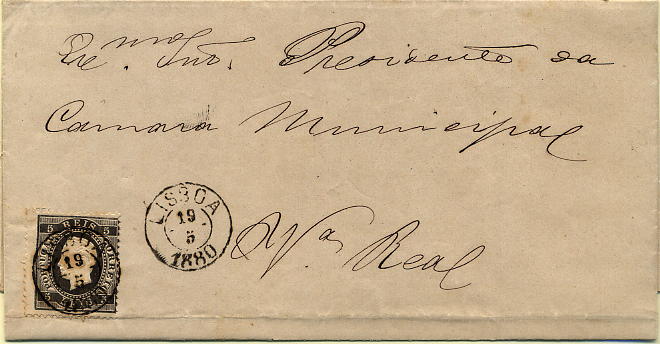 Exmo. Snr. Presidente da
Camara Municipal
Va Real
LISBOA
19
5
1880
5 REIS 5
19
5
5